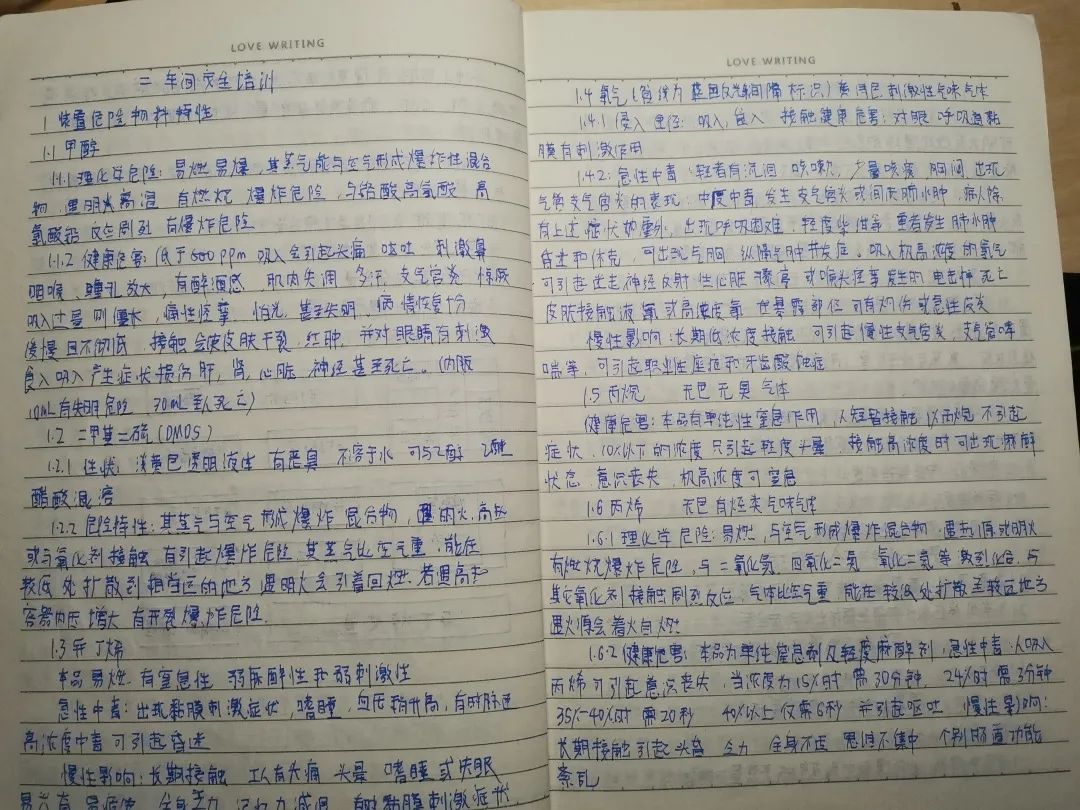 LOVE WRITING
二 车间安全培训
1 装置危险物料特性
1.1 甲醇
1.1.1 理化学危险：易燃易爆，其蒸气能与空气形成爆炸性混合
物，遇明火高温 有燃烧 爆炸危险，与铬酸高氯酸 高
氯酸铅 反应剧烈 有爆炸危险
1.1.2 健康危害：低于600ppm 吸入会引起头痛 呕吐 刺激鼻
咽喉、瞳孔放大，有醉酒感 肌肉失调 多汗 支气管炎 惊厥
吸入过量则 痛性痉挛 怕光 甚至失明，病情恢复十分
缓慢且不彻底，接触会使皮肤干裂，红肿，并对眼睛有刺激
食入吸入产生症状损伤肝，肾，心脏，神经甚至死亡。（内服
10mL有失明危险 30mL致人死亡）
1.2 二甲基二硫（DMDS）
1.2.1 性状：淡黄色透明液体 有恶臭 不溶于水 可与乙醇 乙醚
醋酸混溶
1.2.2 危险特性：其蒸气与空气形成爆炸混合物，遇明火，高热
或与氧化剂接触 有引起爆炸危险 其蒸气比空气重，能在
较低处扩散到相当远的地方遇明火会引着回燃。若遇高热
容器内压增大 有开裂爆炸危险.
1.3 异丁烯
本品易燃 有窒息性 弱麻醉性和弱刺激性
急性中毒：出现黏膜刺激症状，嗜睡，血压稍升高，有时脉速
高浓度中毒可引起昏迷
慢性影响：长期接触 工人有头痛 头晕 嗜睡或失眠
易兴奋 易疲倦 全身乏力 记忆力减退 有时黏膜刺激症状
LOVE WRITING
1.4 氯气（管线为 标识）黄绿色刺激性气味气体
1.4.1 侵入途径：吸入，食入 接触健康危害：对眼 呼吸道黏
膜有刺激作用
1.4.2：急性中毒：轻者有流泪，咳嗽，少量咳痰 胸闷 出现
气管支气管炎的表现；中度中毒 发生支气管炎或间质肺水肿，病人除
有上述症状加重外，出现呼吸困难，轻度紫绀等 重者发生肺水肿
昏迷和休克，可出现气胸 纵隔气肿并发症。吸入极高浓度的氯气
可引起迷走神经反射性心脏骤停 或喉头痉挛发生的 死亡
皮肤接触液氯或高浓度氯 在暴露部位 可有灼伤或急性皮炎
慢性影响：长期低浓度接触 可引起慢性支气管炎，支气管哮
喘等，可引起职业性痤疮和牙齿酸蚀症
1.5 丙烷 无色无臭气体
健康危害：本品有单纯性窒息作用，人短暂接触1%丙烷 不引起
症状，10%以下的浓度 只引起轻度头晕，接触高浓度时可出现麻醉
状态、意识丧失，极高浓度可窒息
1.6 丙烯 无色有烃类气味气体
1.6.1 理化学危险：易燃，与空气形成爆炸混合物，遇热源或明火
有燃烧爆炸危险，与二氧化氮 四氧化二氮 氧化二氮等激烈化合，与
其它氧化剂接触剧烈反应 气体比空气重 能在较低处扩散至较远地方
遇火源会着火回燃
1.6.2 健康危害：本品为单纯窒息剂及轻度麻醉剂，急性中毒：人吸入
丙烯可引起意识丧失，当浓度为15%时 需30分钟，24%时 需3分钟
35%-40%时 需20秒 40%以上仅需6秒 并引起呕吐 慢性影响：
长期接触引起头昏 乏力 全身不适 思维不集中 个别胃肠道功能
紊乱